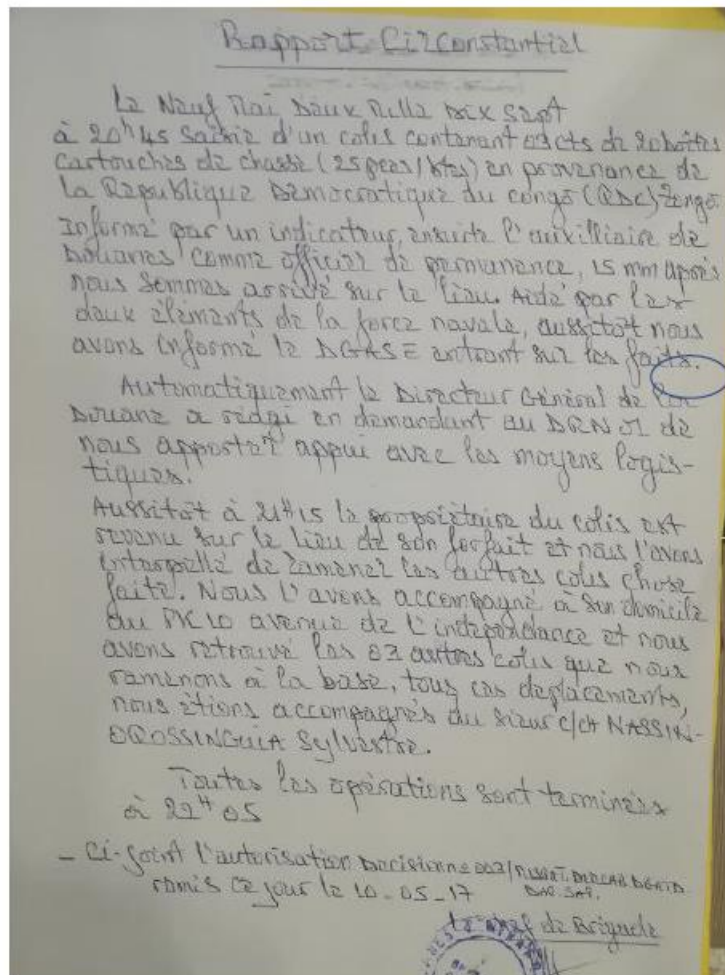 Rapport Circonstantiel
Le Neuf Mai Deux Mille Dix Sept
à 20h45 Saisie d'un colis contenant 03 cts de 20 boîtes
Cartouches de chasse (25 pces/btes) en provenance de
la République Démocratique du congo (RDC) Zongo
Informé par un indicateur, ensuite l'auxilliaire de
Douanes comme officier de permanence, 15 mm après
nous sommes arrivé sur le lieu. Aidé par les
deux éléments de la force navale, aussitôt nous
avons informé le DGASE entrant sur les faits.
Automatiquement le Directeur Général de la
Douane a rédgi en demandant au DRN 01 de
nous apporter appui avec les moyens logis-
tiques.
Aussitôt à 21H15 le propriétaire du colis est
revenu sur le lieu de son forfait et nous l'avons
interpellé de ramener les autres colis chose
faite. Nous l'avons accompagné à son domicile
au PK10 avenue de l'indépendance et nous
avons retrouvé les 02 autres colis que nous
ramenons à la base, tous ces déplacements,
nous étions accompagnés du sieur c/ch NASSIN-
GROSSINGUIA Sylvestre.
Toutes les opérations sont terminées
à 22H05
- Ci-joint l'autorisation Décision n° 002/
remis ce jour le 10-05-17
Le chef de Brigade